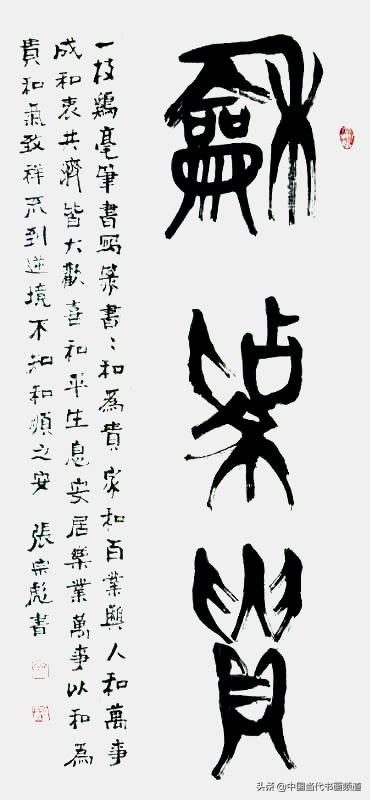 龢為貴
一枝鷄毫筆書寫篆書：和為貴家和百業興人和萬事
成和衷共濟皆大歡喜和平生息安居樂業萬事以和為
貴和氣致祥不到逆境不知和順之安 張宗彪書
头条 @中国当代书画频道